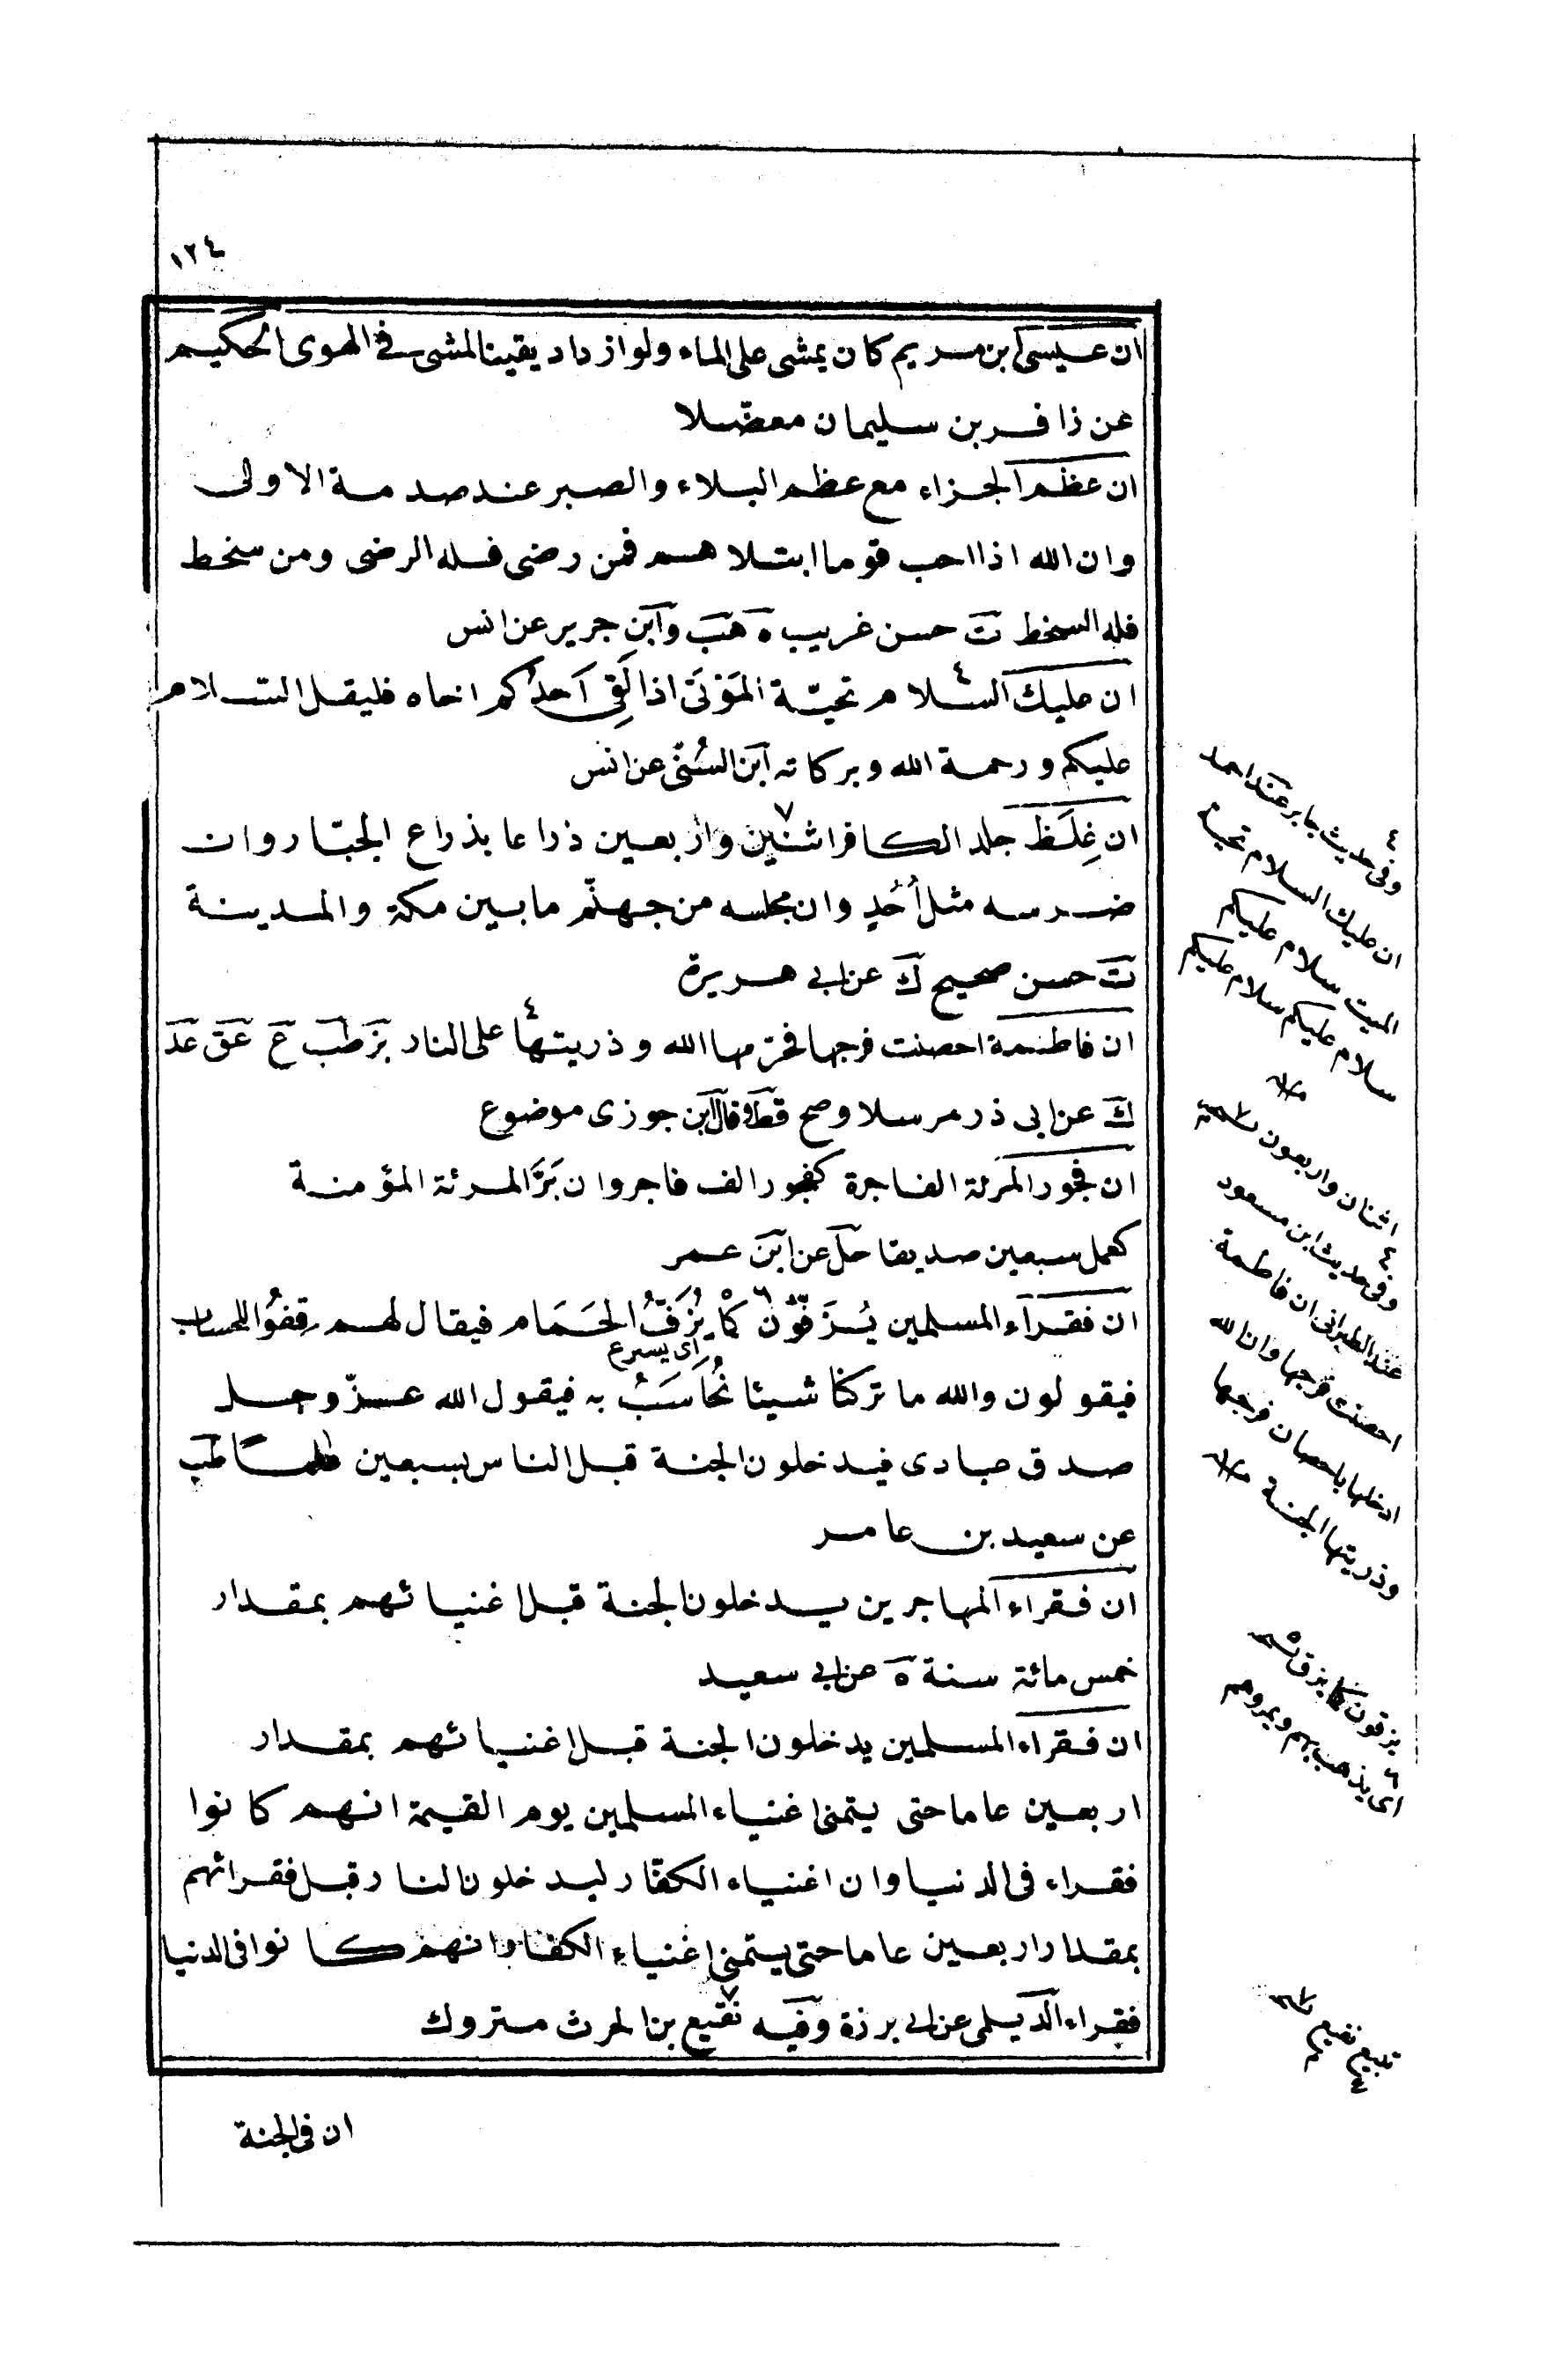 ١٢٤
ان عيسى ابن مريم كان يمشى على الماء ولو ازداد يقينا لمشى فى الهوى الحكيم
عن زافر بن سليمان معضّلا
ان عظم الجزاء مع عظم البلاء والصبر عند صدمة الاولى
وان الله اذا احب قوما ابتلاهم فمن رضى فله الرضى ومن سخط
فله السخط ت حسن غريب ه هب وابن جرير عن انس
ان عليك السلام تحيّة المَوْتَى اذا لَقِى اَحدُكم اخاه فليقل السلام
عليكم ورحمة الله وبركاته ابن السُنّى عن انس
ان غِلَظ جلد الكافر اثنين واربعين ذراعا بذراع الجبّار وان
ضرسه مثل اُحُدٍ وان مجلسه من جهنّم ما بين مكة والمدينة
ت حسن صحيح ك عن ابى هريرة
ان فاطمة احصنت فرجها فحرّمها الله وذريتها على النار بز طب ع عق عد
ك عن ابى ذر مرسلا وصح قط وقال ابن جوزى موضوع
ان فجور المرئة الفاجرة كفجور الف فاجر وان بَرَّ المرئة المؤمنة
كعمل سبعين صديقا حل عن ابن عمر
ان فقراء المسلمين يُزَفّوْن كما يُزَفّ الحَمَام فيقال لهم قِفوُا للحساب
اى يسرع
فيقولون والله ما تركنا شيئا نُحَاسَبُ به فيقول الله عزّ وجل
صدق عبادى فيدخلون الجنة قبل الناس بسبعين عاما طب
عن سعيد بن عامر
ان فقراء المهاجرين يدخلون الجنة قبل اغنيائهم بمقدار
خمس مائة سنة ه عن ابى سعيد
ان فقراء المسلمين يدخلون الجنة قبل اغنيائهم بمقدار
اربعين عاما حتى يتمنى اغنياء المسلمين يوم القيمة انهم كانوا
فقراء فى الدنيا وان اغنياء الكفّار ليدخلون النار قبل فقرائهم
بمقدار اربعين عاما حتى يتمنى اغنياء الكفار انهم كانوا فى الدنيا
فقراء الديلمى عن ابى برزة وفيه نقيع بن الحرث متروك
ان فى الجنة
٤
وفى حديث جابر عند احمد
ان عليك السلام تحية
الميت سلام عليكم
سلام عليكم سلام عليكم
اثنان واربعون
٤
وفى حديث ابن مسعود
عند الطبرانى ان فاطمة
احصنت فرجها وان الله
ادخلها باحصان فرجها
وذريتها الجنة
يزفون كما يزف
٦
اى يذهب بهم ويمر بهم
نفيع